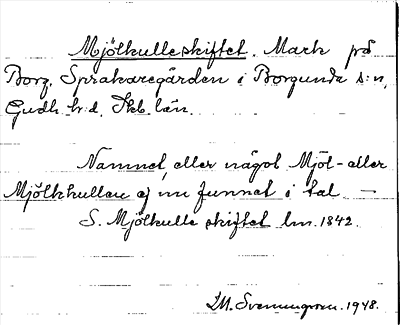 Mjölkulleskiftet. Mark på
Borg. Sprakaregården i Borgunda s:n,
Gudh. h:d, Skb. län.
Namnet eller något Mjöl- eller
Mjölkkullen ej nu funnet i tal. —
S. Mjölkulle skiftet lm. 1842.
I.M. Svenungsson. 1948.